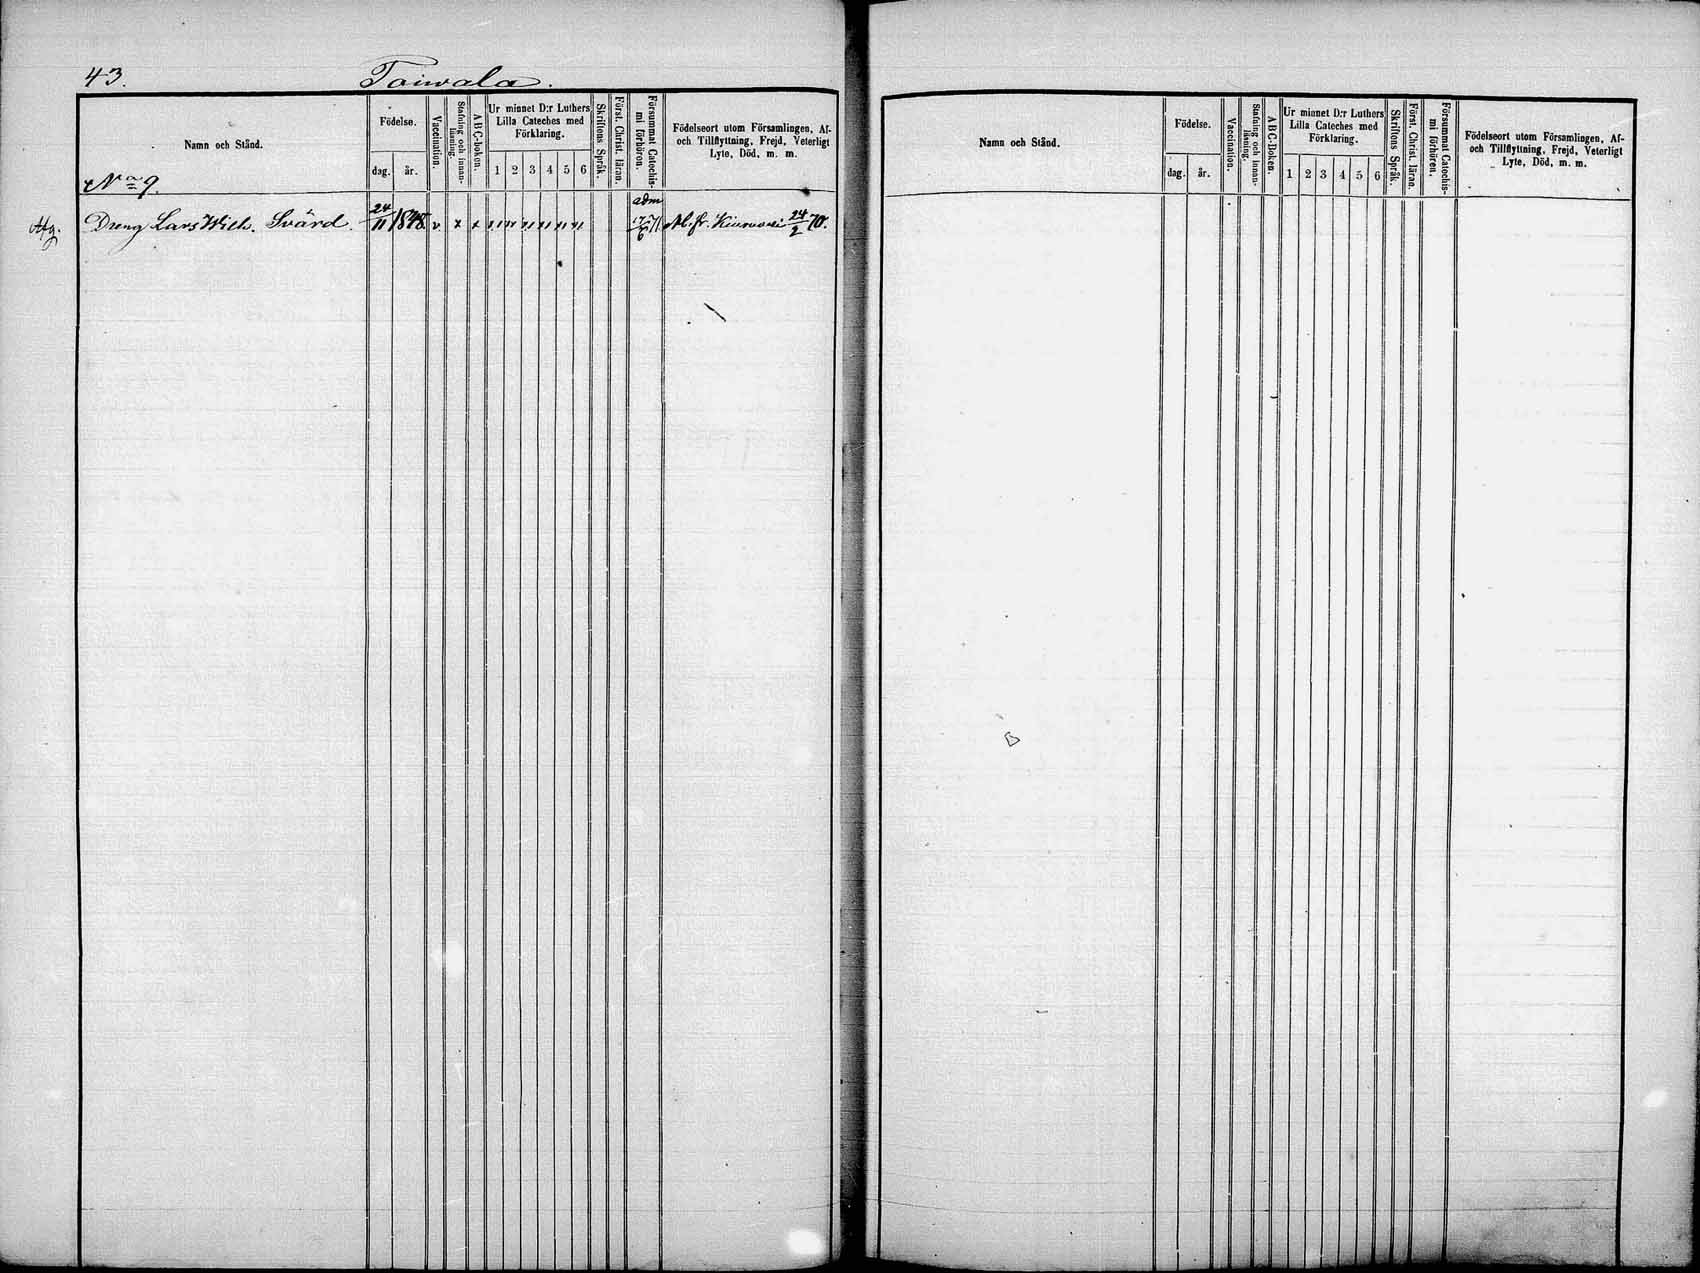 43. Toiwola.
Namn och Stånd.
Födelse.
dag. år.
Vaccination.
Stafning och innan-
läsning.
ABC-boken.
Ur minnet D:r Luthers
Lilla Cateches med
Förklaring.
1 2 3 4 5 6
Skriftens Språk.
Först. Christ. läran.
Försummat Catechis-
mi förhören.
Födelseort utom Församlingen, Af-
och Tillflyttning, Frejd, Veterligt
Lyte, Död, m. m.
No 9.
Afg. Dreng Lars Wilh. Svärd. 24/11 1848. v x x x x x x x x adm 17/6 71 Ab. fr. 24/2 70.
Namn och Stånd.
Födelse.
dag. år.
Vaccination.
Stafning och innan-
läsning.
ABC-Boken.
Ur minnet D:r Luthers
Lilla Cateches med
Förklaring.
1 2 3 4 5 6
Skriftens Språk.
Först. Christ. läran.
Försummat Catechis-
mi förhören.
Födelseort utom Församlingen, Af-
och Tillflyttning, Frejd, Veterligt
Lyte, Död, m. m.